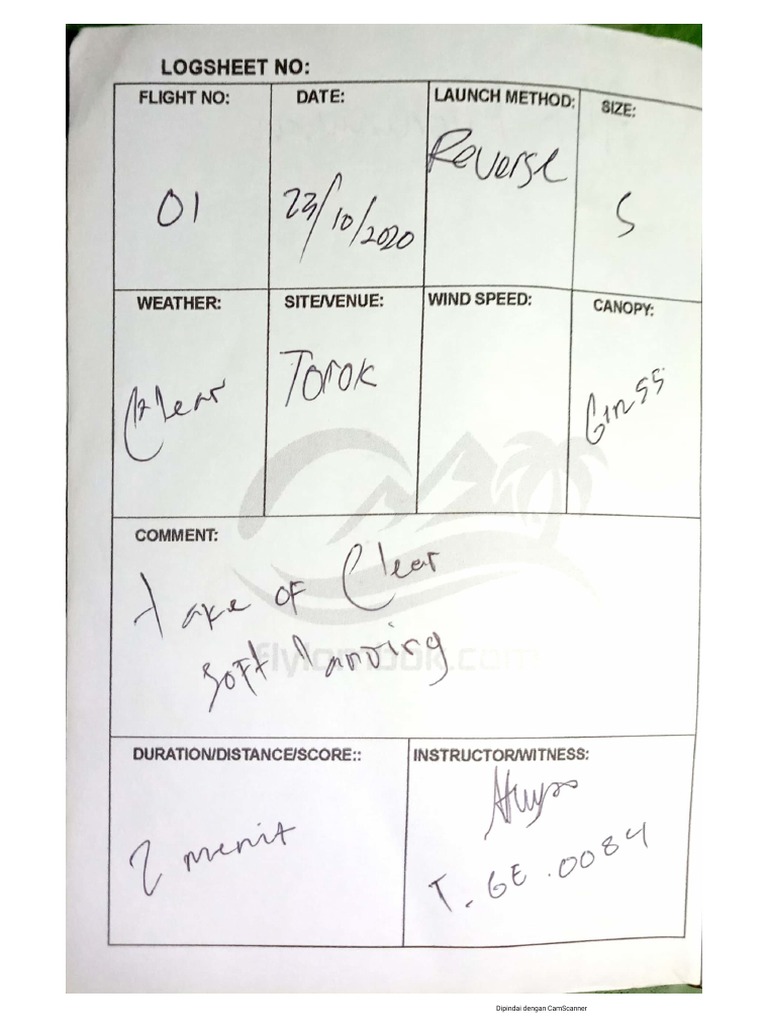 LOGSHEET NO:
FLIGHT NO: DATE: LAUNCH METHOD: SIZE:
01 23/10/2020 Reverse S
WEATHER: SITE/VENUE: WIND SPEED: CANOPY:
Clear Torok
COMMENT:
take of Clear
soft landing
flylombok.com
DURATION/DISTANCE/SCORE:: INSTRUCTOR/WITNESS:
2 menit
T. GE. 0084
Dipindai dengan CamScanner